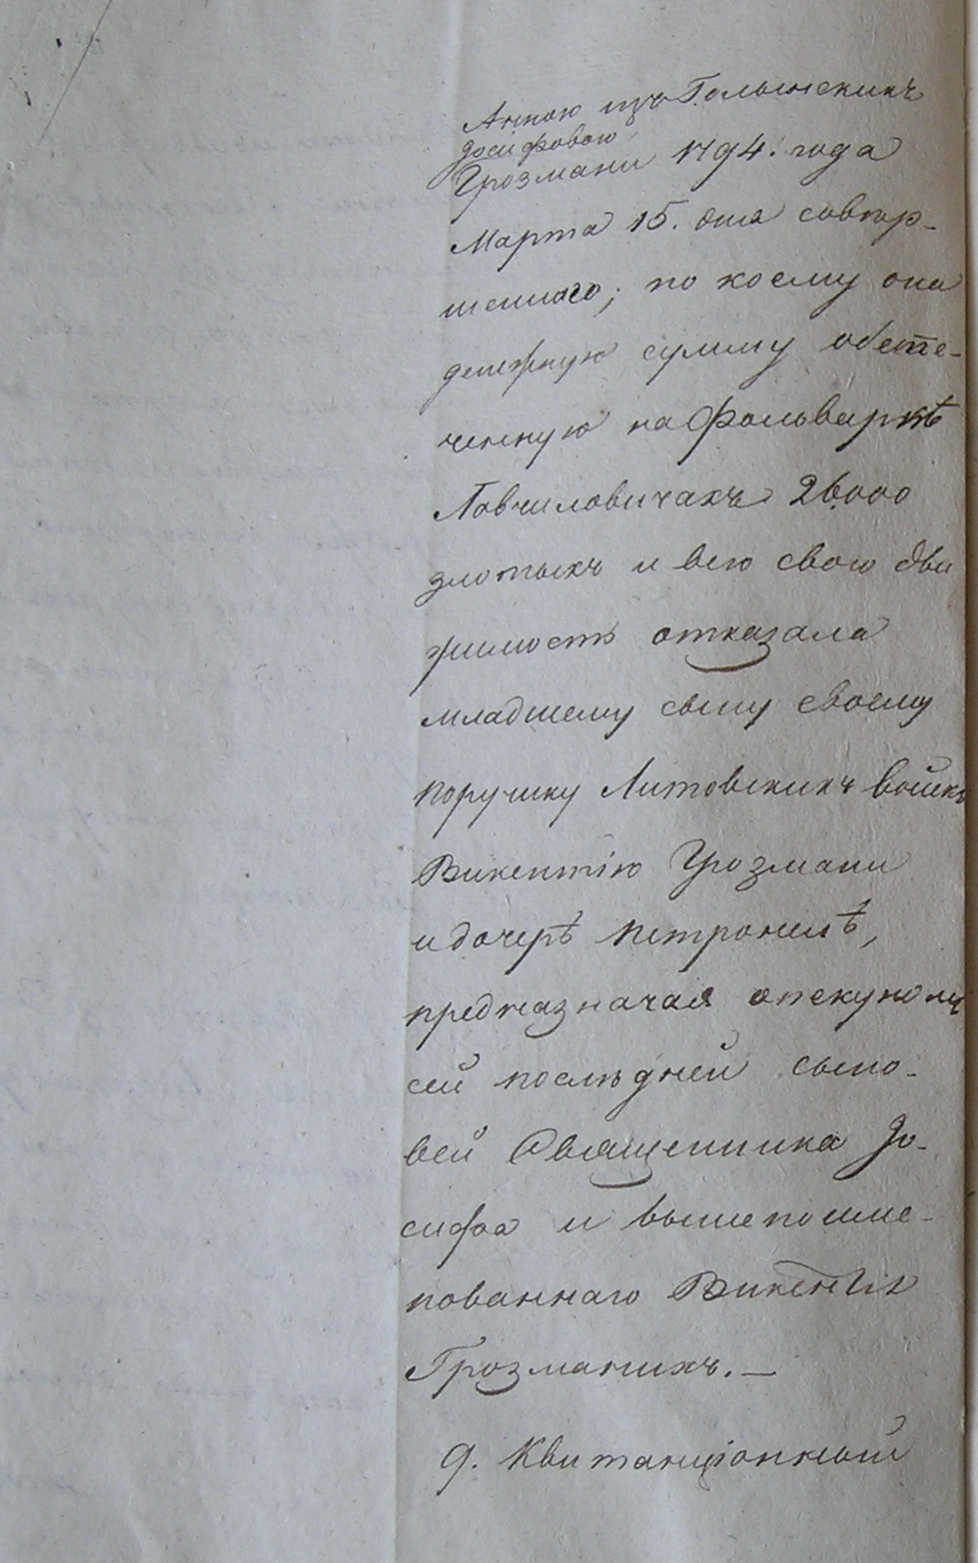 Анною изъ Голынскихъ
Іосифовою
Грозмани 1794. года
Марта 15. дня совер-
шеннаго; по коему она
денежную сумму обезпе-
ченную на Фольваркѣ
Ловчиловичахъ 26000
злотыхъ и всю свою дви
жимость отказала
младшему сыну своему
поручику Литовскихъ войскъ
Викентію Грозмани
и дочерѣ Петронелѣ,
предназначая опекуномъ
сей послѣдней сыно-
вей Священника Іо-
сифа и вышепоиме-
нованнаго Викентія
Грозманихъ. —
9. Квитанціонный